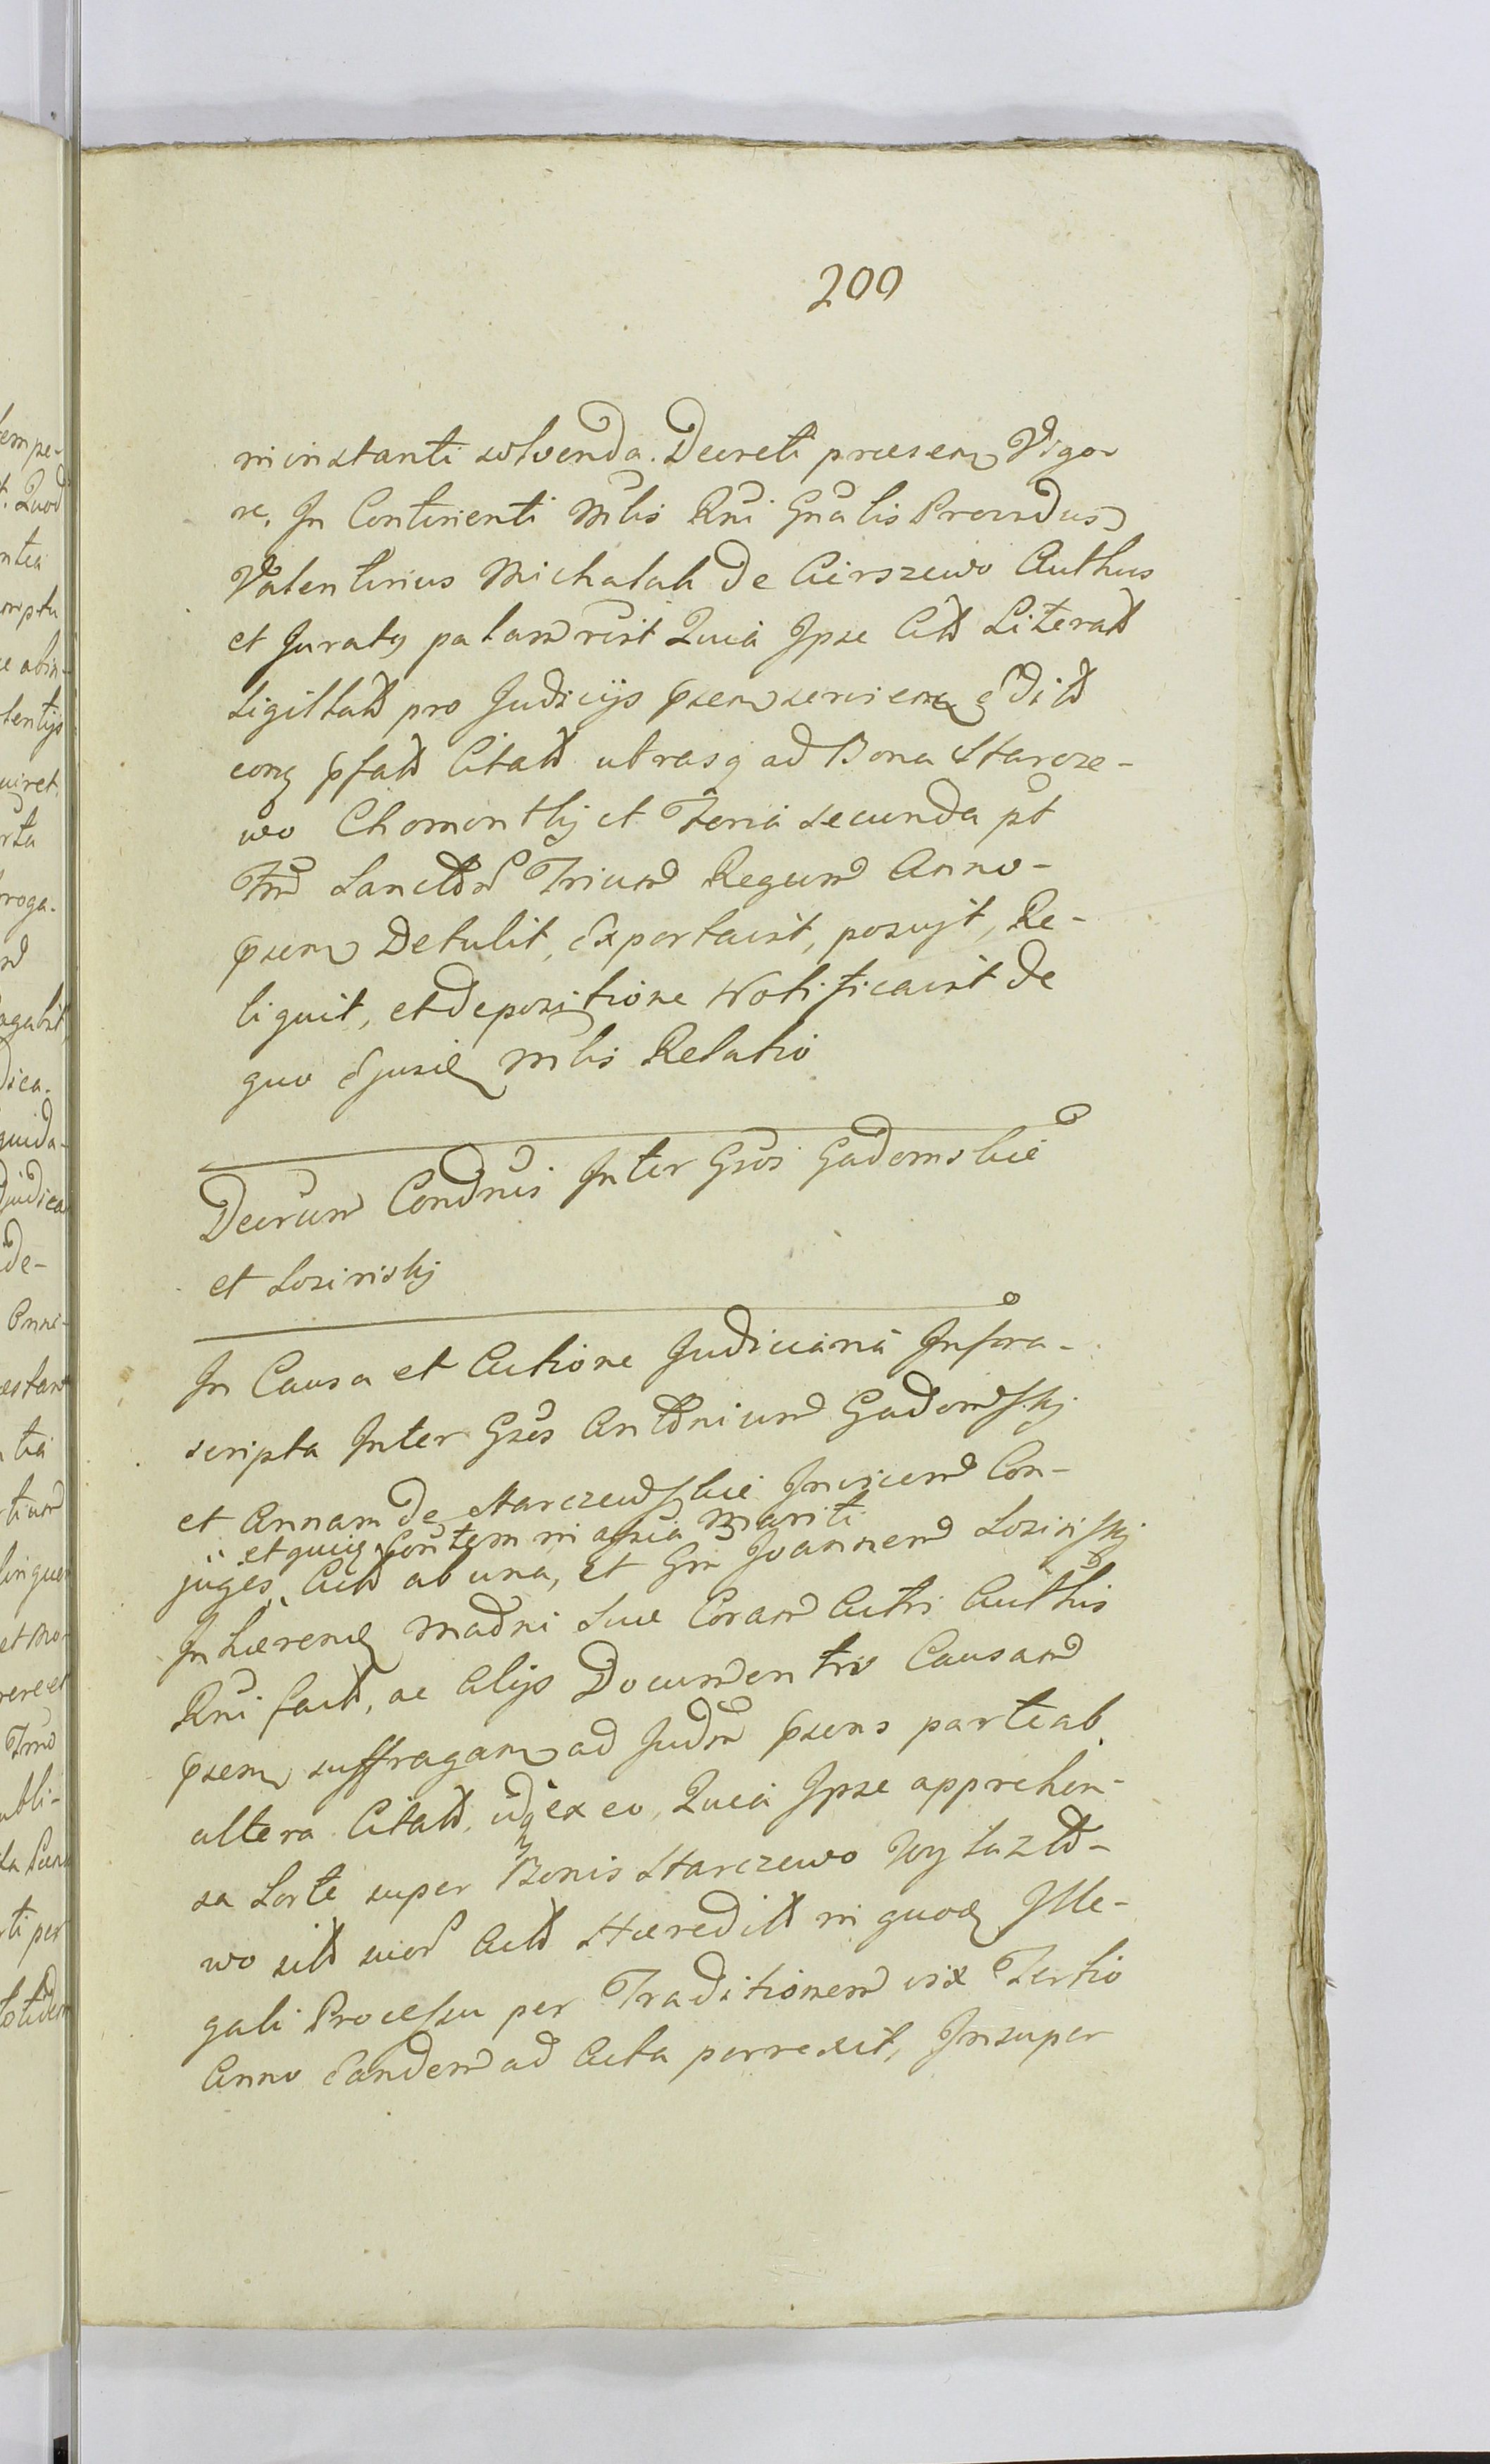 200
in instanti solvenda. Decreti praesen Vigo
re, In Continenti Mlis Rni Gnalis Providus
Valentinus Michalak de Cierszewo Authus
et Juratq palam rnit Quia Ipse Citt Literatt
Sigillatt pro Judicijs psen servien editt
eorq pfatt Citatt utrasq ad Bona Starcze-
wo Chomontky et Feria secunda pt
Ftm Sanctor Trium Regum Anno-
psen Detulit, Exportavit, posuit, Re-
liquit, et depositione Notificavit de
quo Ejusd Mlis Relatio
Decrum Condnis Inter Gsos Gadomskie
et Losinskj
In Causa et Actione Judiciaria Infra-
scripta Inter Gsos Antonium Gadomskj
et Annam de Starczewskie Invicem Con-
et quidem in assia Mariti
juges, Actt ab una, et Gm Joannem Losinskj
Inhaeren Madni Suae Coram Actis Authis
Rni fact, ac alijs Documentis Causam
psen suffragan ad Judm psens parte ab
altera Citatt, idq ex eo, Quia Ipse apprehen-
sa Sorte super Bonis Starczewo Wylazto-
wo sitt suor Actt Haereditt in quoq Ille-
gali Processu per Traditionem vix Tertio
Anno Eandem ad Acta porrexit, Insuper